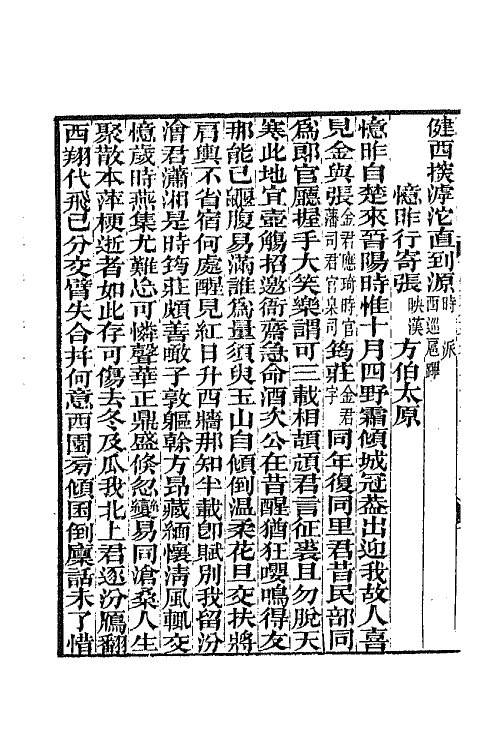 健西㨗滹沱直到源時派西巡扈蹕
憶昨行寄張映漢方伯太原
憶昨自楚來晉陽時惟十月四野霜傾城冠葢出迎我故人喜
見金與張金君應琦時官藩司君官臬司筠莊金君字同年復同里君昔民部同
爲郎官廳握手大笑樂謂可三載相頡頏君言征裘且勿脫天
寒此地宜壺觴招邀衙齋急命酒次公在昔醒猶狂嚶鳴得友
那能已鼴腹易滿誰爲量須臾玉山自傾倒溫柔花旦交扶將
肩輿不省宿何處醒見紅日升西牆那知半載卽賦別我留汾
澮君瀟湘是時筠莊頗善噉子敦軀幹方昂藏緬懷淸風輒交
憶歲時燕集尤難忘可憐聲華正鼎盛倏忽變易同滄桑人生
聚散本萍梗逝者如此存可傷去冬及瓜我北上君逐汾鴈翻
西翔代飛已分交臂失合幷何意西園旁傾囷倒廩話未了惜